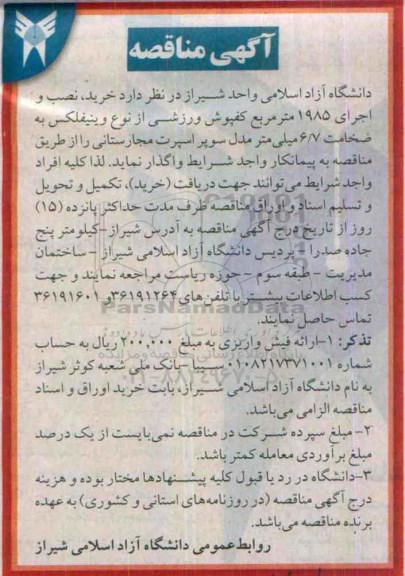 آگهی مناقصه
دانشگاه آزاد اسلامی واحد شیراز در نظر دارد خرید، نصب و
اجرای ۱۹۸۵ مترمربع کفپوش ورزشی از نوع وینیفلکس به
ضخامت ۶/۷ میلی‌متر مدل سوپر اسپرت مجارستانی را از طریق
مناقصه به پیمانکار واجد شرایط واگذار نماید. لذا کلیه افراد
واجد شرایط می‌توانند جهت دریافت (خرید)، تکمیل و تحویل
و تسلیم اسناد و اوراق مناقصه ظرف مدت حداکثر پانزده (۱۵)
روز از تاریخ درج آگهی مناقصه به آدرس شیراز-کیلومتر پنج
جاده صدرا - پردیس دانشگاه آزاد اسلامی شیراز - ساختمان
مدیریت - طبقه سوم - حوزه ریاست مراجعه نمایند و جهت
کسب اطلاعات بیشتر با تلفن‌های ۳۶۱۹۱۲۶۴ و ۳۶۱۹۱۶۰۱
تماس حاصل نمایند.
ParsNamadData
تذکر: ۱-ارائه فیش واریزی به مبلغ ۲۰۰,۰۰۰ ریال به حساب
شماره ۰۱۰۸۲۱۷۳۷۱۰۰۱ سیبا - بانک ملی شعبه کوثر شیراز
به نام دانشگاه آزاد اسلامی شیراز، بابت خرید اوراق و اسناد
مناقصه الزامی می‌باشد.
۲- مبلغ سپرده شرکت در مناقصه نمی‌بایست از یک درصد
مبلغ برآوردی معامله کمتر باشد.
۳-دانشگاه در رد یا قبول کلیه پیشنهادها مختار بوده و هزینه
درج آگهی مناقصه (در روزنامه‌های استانی و کشوری) به عهده
برنده مناقصه می‌باشد.
روابط عمومی دانشگاه آزاد اسلامی شیراز